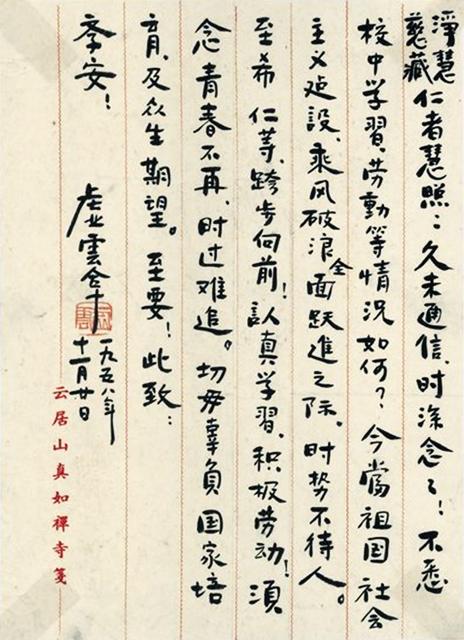 淨慧
慈藏
仁者慧照：久未通信，时深念々！不悉
校中学習、劳動等情况如何？今當祖国社会
主义建設、乘风破浪、全面跃進之际，时势不待人。
至希 仁等、跨步向前！認真学習、积极劳动！須
念青春不再，时过难追。切毋辜負国家培
育、及众生期望。至要！此致：
季安！
虚雲合十
一九五八年
十一月廿日
云居山真如禪寺箋